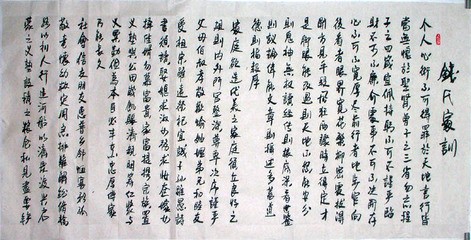 錢氏家訓
个人心術不可得罪於天地言行皆
當無愧於聖賢曾子之三省勿忘程
子之四箴宜佩持躬不可不謹嚴臨
財不可不廉介處事不可不決斷存
心不可不寬厚盡前行者地步窄向
後看者眼界寬花繁柳密處撥得
開方見手段風狂雨驟時立得定才
是腳跟能改過則天地不怒能安分
則鬼神無權讀經傳則根柢深看史鑒
則議論偉能文章則稱述多蓄道
德則福報厚
家庭欲造優美之家庭須立良好之
規則內外門閭整潔尊卑次序謹嚴
父母伯叔孝敬歡愉妯娌弟兄和睦友
愛祖宗雖遠祭祀宜誠子孫雖愚詩
書須讀娶媳求淑女勿計妝奩嫁女
擇佳婿勿慕富貴家富提攜宗族置
義塾與公田歲饑賑濟親朋籌仁漿與
義粟勤儉為本自必豐亨忠厚傳家
乃能長久
社會信交朋友惠普鄉鄰恤寡矜孤
敬老懷幼救災周急排難解紛修橋
路以利人行造河船以濟眾渡興啟
蒙之義塾設積穀之社倉私見盡要鏟